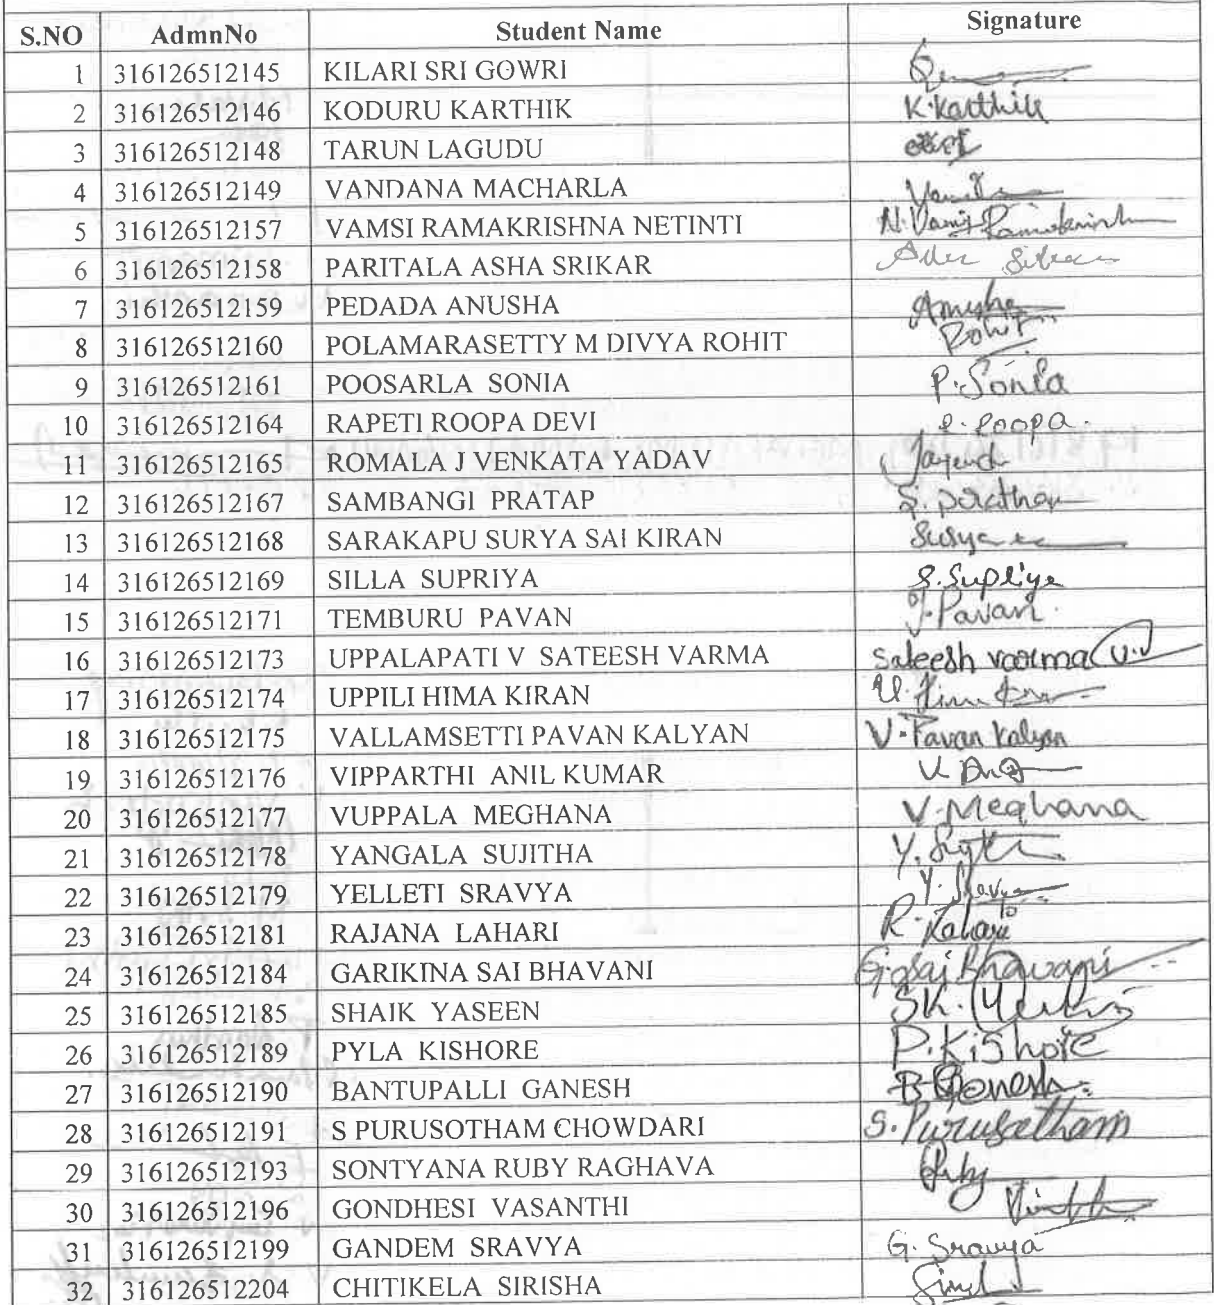 S.NO AdmnNo Student Name Signature
1 316126512145 KILARI SRI GOWRI
2 316126512146 KODURU KARTHIK K.Karthik
3 316126512148 TARUN LAGUDU
4 316126512149 VANDANA MACHARLA
5 316126512157 VAMSI RAMAKRISHNA NETINTI N.Vamsi Ramakrishna
6 316126512158 PARITALA ASHA SRIKAR
7 316126512159 PEDADA ANUSHA Anusha
8 316126512160 POLAMARASETTY M DIVYA ROHIT Rohit
9 316126512161 POOSARLA SONIA P.Sonia
10 316126512164 RAPETI ROOPA DEVI R.Roopa.
11 316126512165 ROMALA J VENKATA YADAV
12 316126512167 SAMBANGI PRATAP
13 316126512168 SARAKAPU SURYA SAI KIRAN Surya
14 316126512169 SILLA SUPRIYA S.Supriya
15 316126512171 TEMBURU PAVAN T.Pavan.
16 316126512173 UPPALAPATI V SATEESH VARMA Sateesh varma
17 316126512174 UPPILI HIMA KIRAN
18 316126512175 VALLAMSETTI PAVAN KALYAN V.Pavan Kalyan
19 316126512176 VIPPARTHI ANIL KUMAR
20 316126512177 VUPPALA MEGHANA V.Meghana
21 316126512178 YANGALA SUJITHA
22 316126512179 YELLETI SRAVYA Y.Sravya
23 316126512181 RAJANA LAHARI R.Lahari
24 316126512184 GARIKINA SAI BHAVANI G.Sai Bhavani
25 316126512185 SHAIK YASEEN
26 316126512189 PYLA KISHORE P.Kishore
27 316126512190 BANTUPALLI GANESH B.Ganesh
28 316126512191 S PURUSOTHAM CHOWDARI S.Purusotham
29 316126512193 SONTYANA RUBY RAGHAVA Ruby
30 316126512196 GONDHESI VASANTHI
31 316126512199 GANDEM SRAVYA G. Sravya
32 316126512204 CHITIKELA SIRISHA